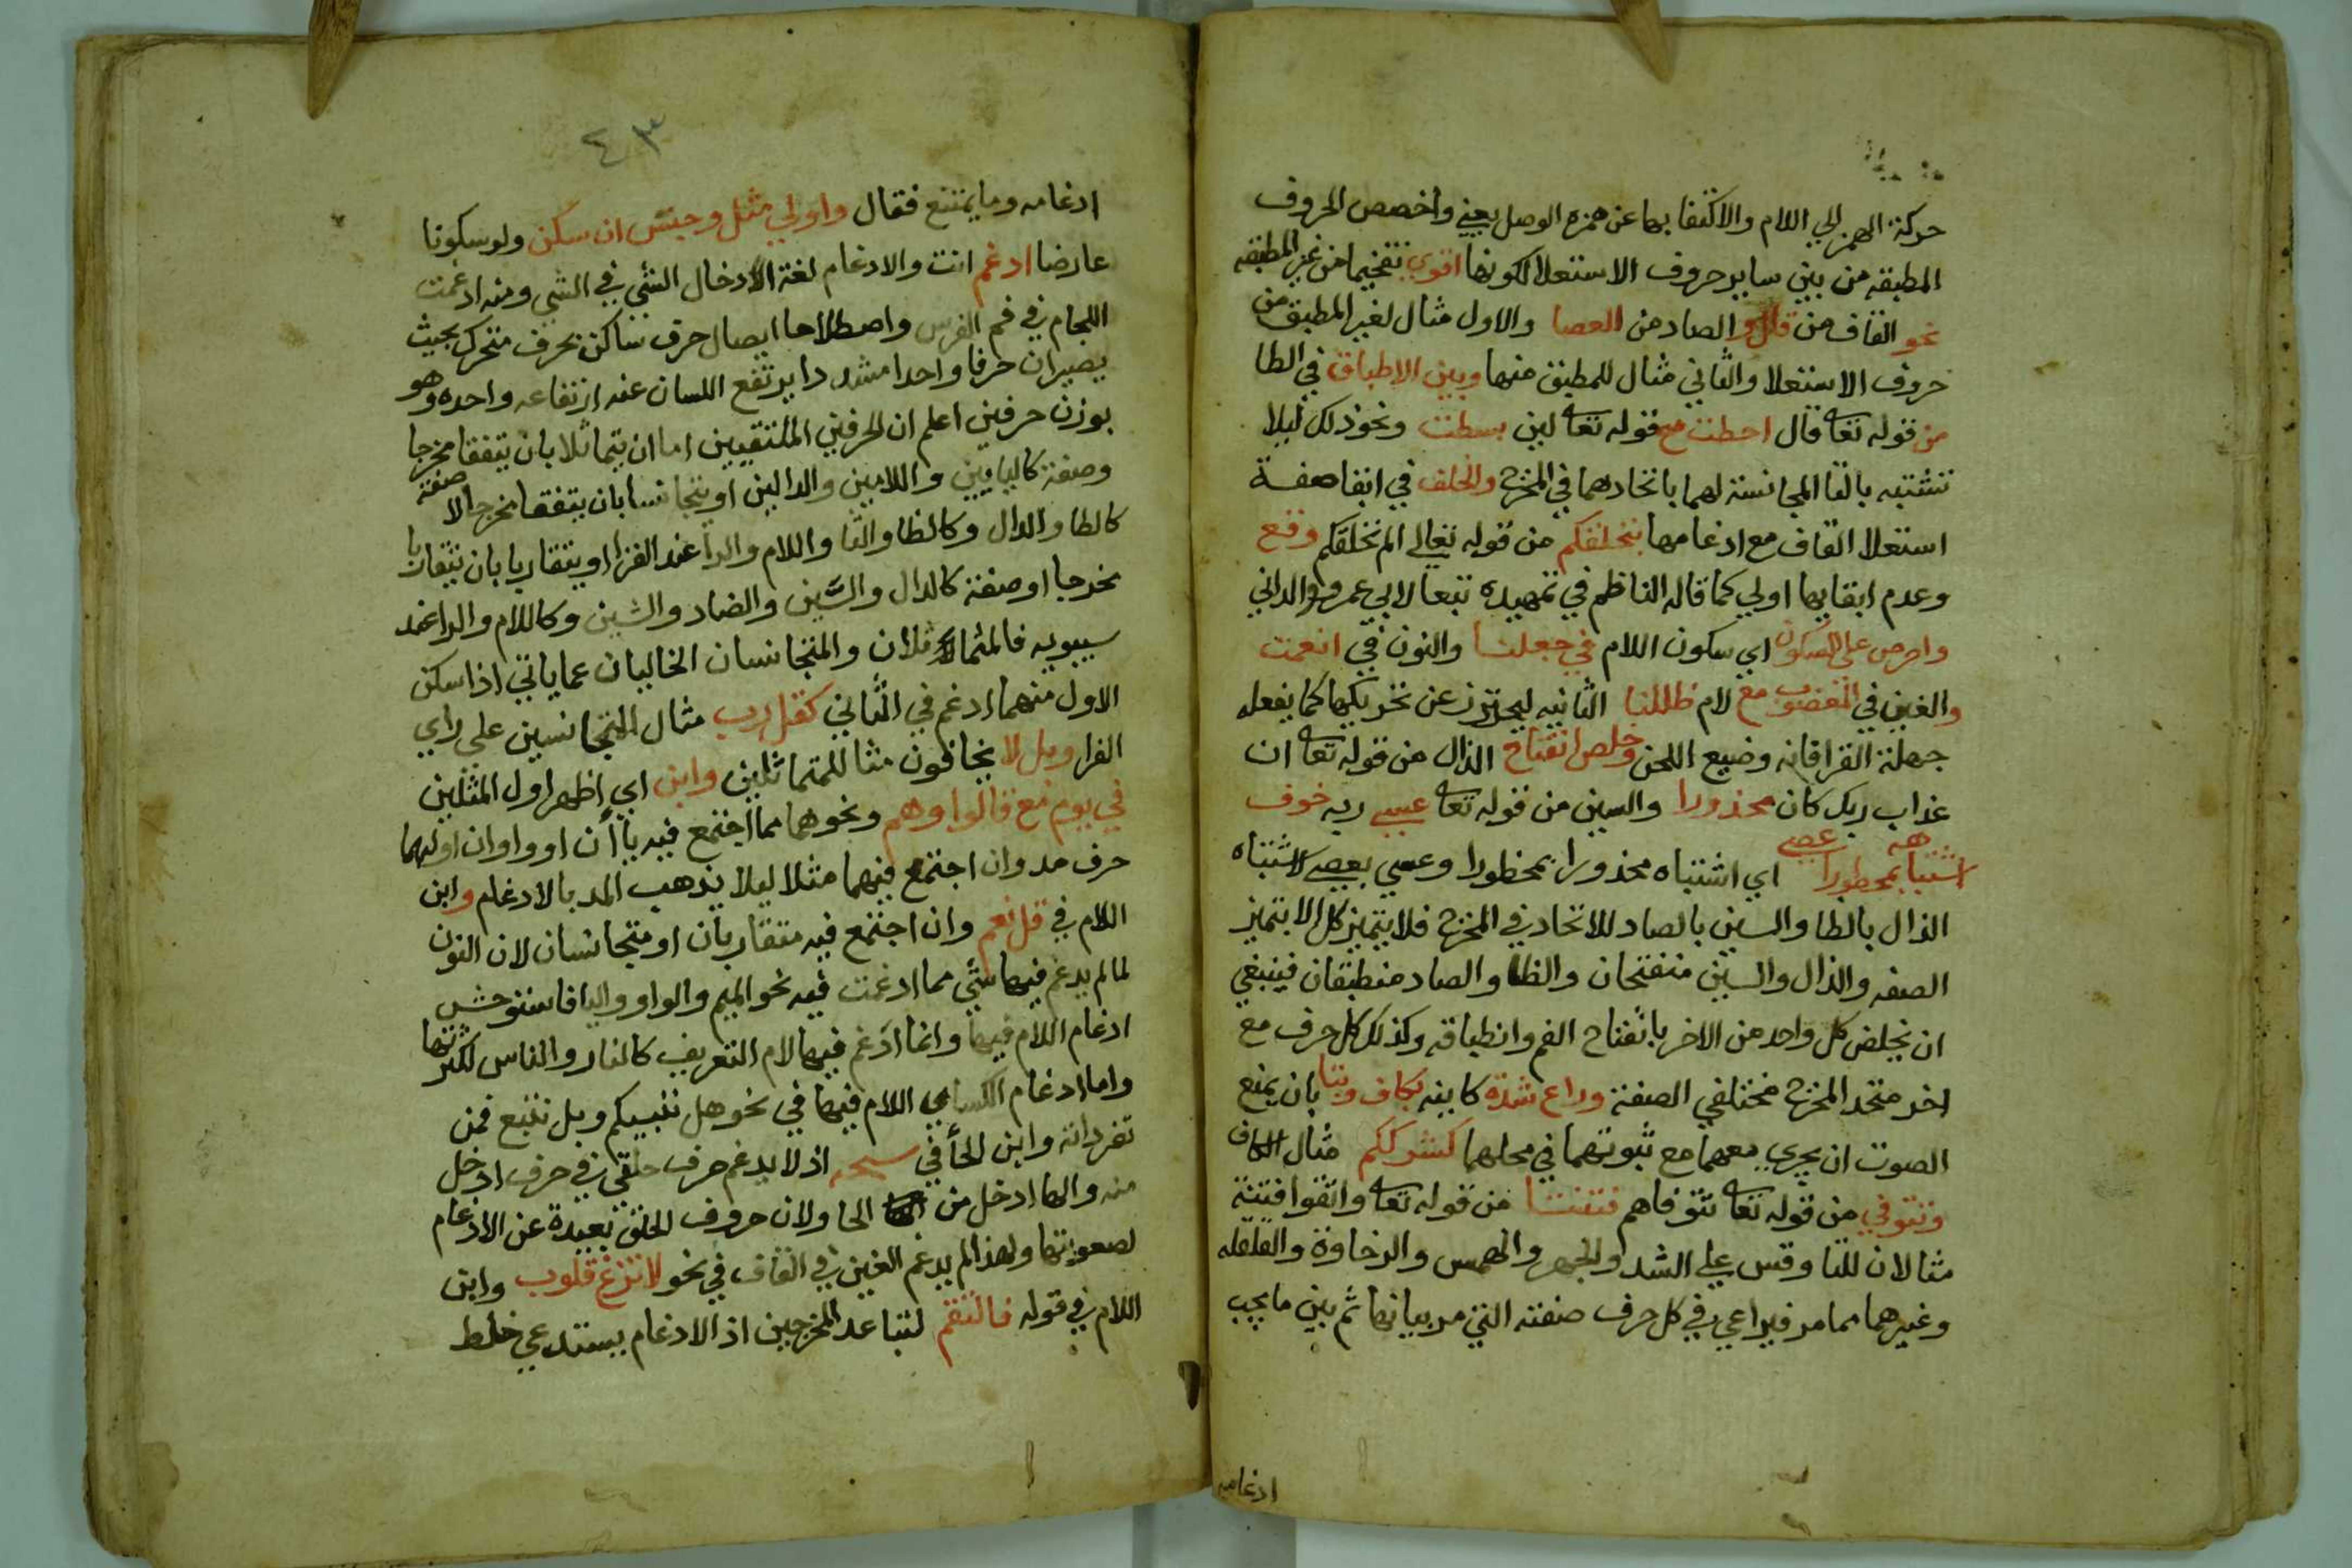 حركة الهمز الي اللام والاكتفا بها عن همزه الوصل يعني واخصص الحروف
المطبقه من بين ساير حروف الاستعلا لكونها اقوي تفخيما من غير المطبقه
نحو القاف من قال والصاد من العصا والاول مثال لغير المطبق من
حروف الاستعلا والثاني مثال للمطبق منها وبين الاطباق في الطا
من قوله تعا قال احطت مع قوله تعا لين بسطت ونحو ذلك ليلا
تشتبه بالتا المجانسة لهما باتحادهما في المخرج والخلف في ابقا صفة
استعلا القاف مع ادغامها بنخلقكم من قوله تعالي الم نخلقكم وقع
وعدم ابقايها اولي كما قاله الناظم في تمهيده تبعا لابي عمرو الداني
واحرص علي السكون اي سكون اللام في جعلنا والنون في انعمت
والغين في المغضوب مع لام ظللنا الثانيه ليحترز عن تحريكها كما يفعله
جهلة القرا فانه وضيع اللحن وخلص انفتاح الذال من قوله تعا ان
عذاب ربك كان محذورا والسين من قوله تعا عسي ربه خوف
اشتباهه بمحظورا عصي اي اشتباه محذورا بمحظورا وعسي بعصي لاشتباه
الذال بالظا والسين بالصاد للاتحاد في المخرج فلا يتميز كل الا بتميز
الصفه والذال والسين منفتحان والظا والصاد منطبقان فينبغي
ان يخلص كل واحد من الاخر بانفتاح الفم وانطباقه وكذلك كل حرف مع
اخر متحد المخرج مختلفي الصفة وراع شدة كاينه بكاف وبتا بان يمنع
الصوت ان يجري معهما مع ثبوتهما في محلهما كشرككم مثال الكاف
وتتوفي من قوله تعا تتوفاهم فتنتنا من قوله تعا واتقوا فتنة
مثالان للتا وقس علي الشد والجهر والهمس والرخاوة والقلقله
وغيرهما مما مر فيراعي في كل حرف صفته التي مر بيانها ثم بين ما يجب
ادغامه
٤٣
ادغامه وما يمتنع فقال واولي مثل وجنس ان سكن ولو سكونا
عارضا ادغم انت والادغام لغة الادخال الشي في الشي ومنه ادغمت
اللجام في فم الفرس واصطلاحا ايصال حرف ساكن بحرف متحرك بحيث
يصيران حرفا واحدا مشددا يرتفع اللسان عنه ارتفاعه واحده وهو
بوزن حرفين اعلم ان الحرفين الملتقيين اما ان يتماثلا بان يتفقا مخرجا
وصفة كالبايين واللامين والدالين او يتجانسا بان يتفقا مخرجا لا صفة
كالطا والدال وكالظا والثا واللام والرا عند الفرا او يتقاربا بان يتقاربا
مخرجا او صفة كالدال والسين والضاد والشين وكاللام والرا عند
سيبويه فالمتماثلان والمتجانسان الخاليان عما ياتي اذا سكن
الاول منهما ادغم في الثاني كقل رب مثال المتجانسين علي راي
الفرا وبل لا يخافون مثا للمتماثلين وابن اي اظهر اول المثلين
في يوم مع قالوا وهم ونحوهما مما اجتمع فيه ياأن او واوان اولهما
حرف مد وان اجتمع فيهما مثلا ليلا يذهب المد بالادغام وابن
اللام في قل نعم وان اجتمع فيه متقاربان او متجانسان لان النون
لما لم يدغم فيها شي مما ادغمت فيه نحو الميم والواو واليا فاستوحش
ادغام اللام فيها وانما ادغم فيها لام التعريف كالنار والناس لكثرتها
واما ادغام الكساي اللام فيها في نحو هل ننبيكم وبل نتبع فمن
تفرداته وابن الحا في سبحه اذ لا يدغم حرف حلقي في حرف ادخل
منه والها ادخل من الحا ولان حروف الحلق بعيدة عن الادغام
لصعوبتها ولهذا لم يدغم الغين في القاف في نحو لا تزغ قلوب وابن
اللام في قوله فالتقم لتباعد المخرجين اذ الادغام يستدعي خلط